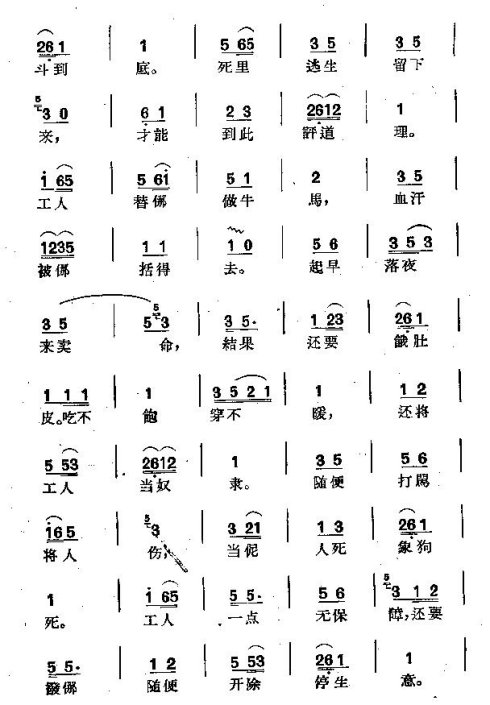 2 6 1 | 1 | 5 6 5 | 3 5 | 3 5
斗到 底。 死里 逃生 留下
5 3 0 | 6 1 | 2 3 | 2612 | 1
来, 才能 到此 評道 理。
1 65 | 5 61 | 5 1 | 2 | 3 5
工人 替㑚 做牛 馬, 血汗
1235 | 1 1 | 1 0 | 5 6 | 3 5 3
被㑚 括得 去。 起早 落夜
3 5 | 5 5 3 | 3 5· | 1 23 | 26 1
来卖 命, 結果 还要 餓肚
1 1 1 | 1 | 3 5 2 1 | 1 | 1 2
皮。吃不 飽 穿不 暖, 还将
5 53 | 2612 | 1 | 3 5 | 5 6
工人 当奴 隶。 随便 打駡
1 6 5 | 5 3 | 3 21 | 1 3 | 26 1
将人 伤, 当伲 人死 象狗
1 | 1 65 | 5 5· | 5 6 | 5 3 1 2
死。 工人 一点 无保 障,还要
5 5· | 1 2 | 5 53 | 26 1 | 1
㑚 随便 开除 停生 意。